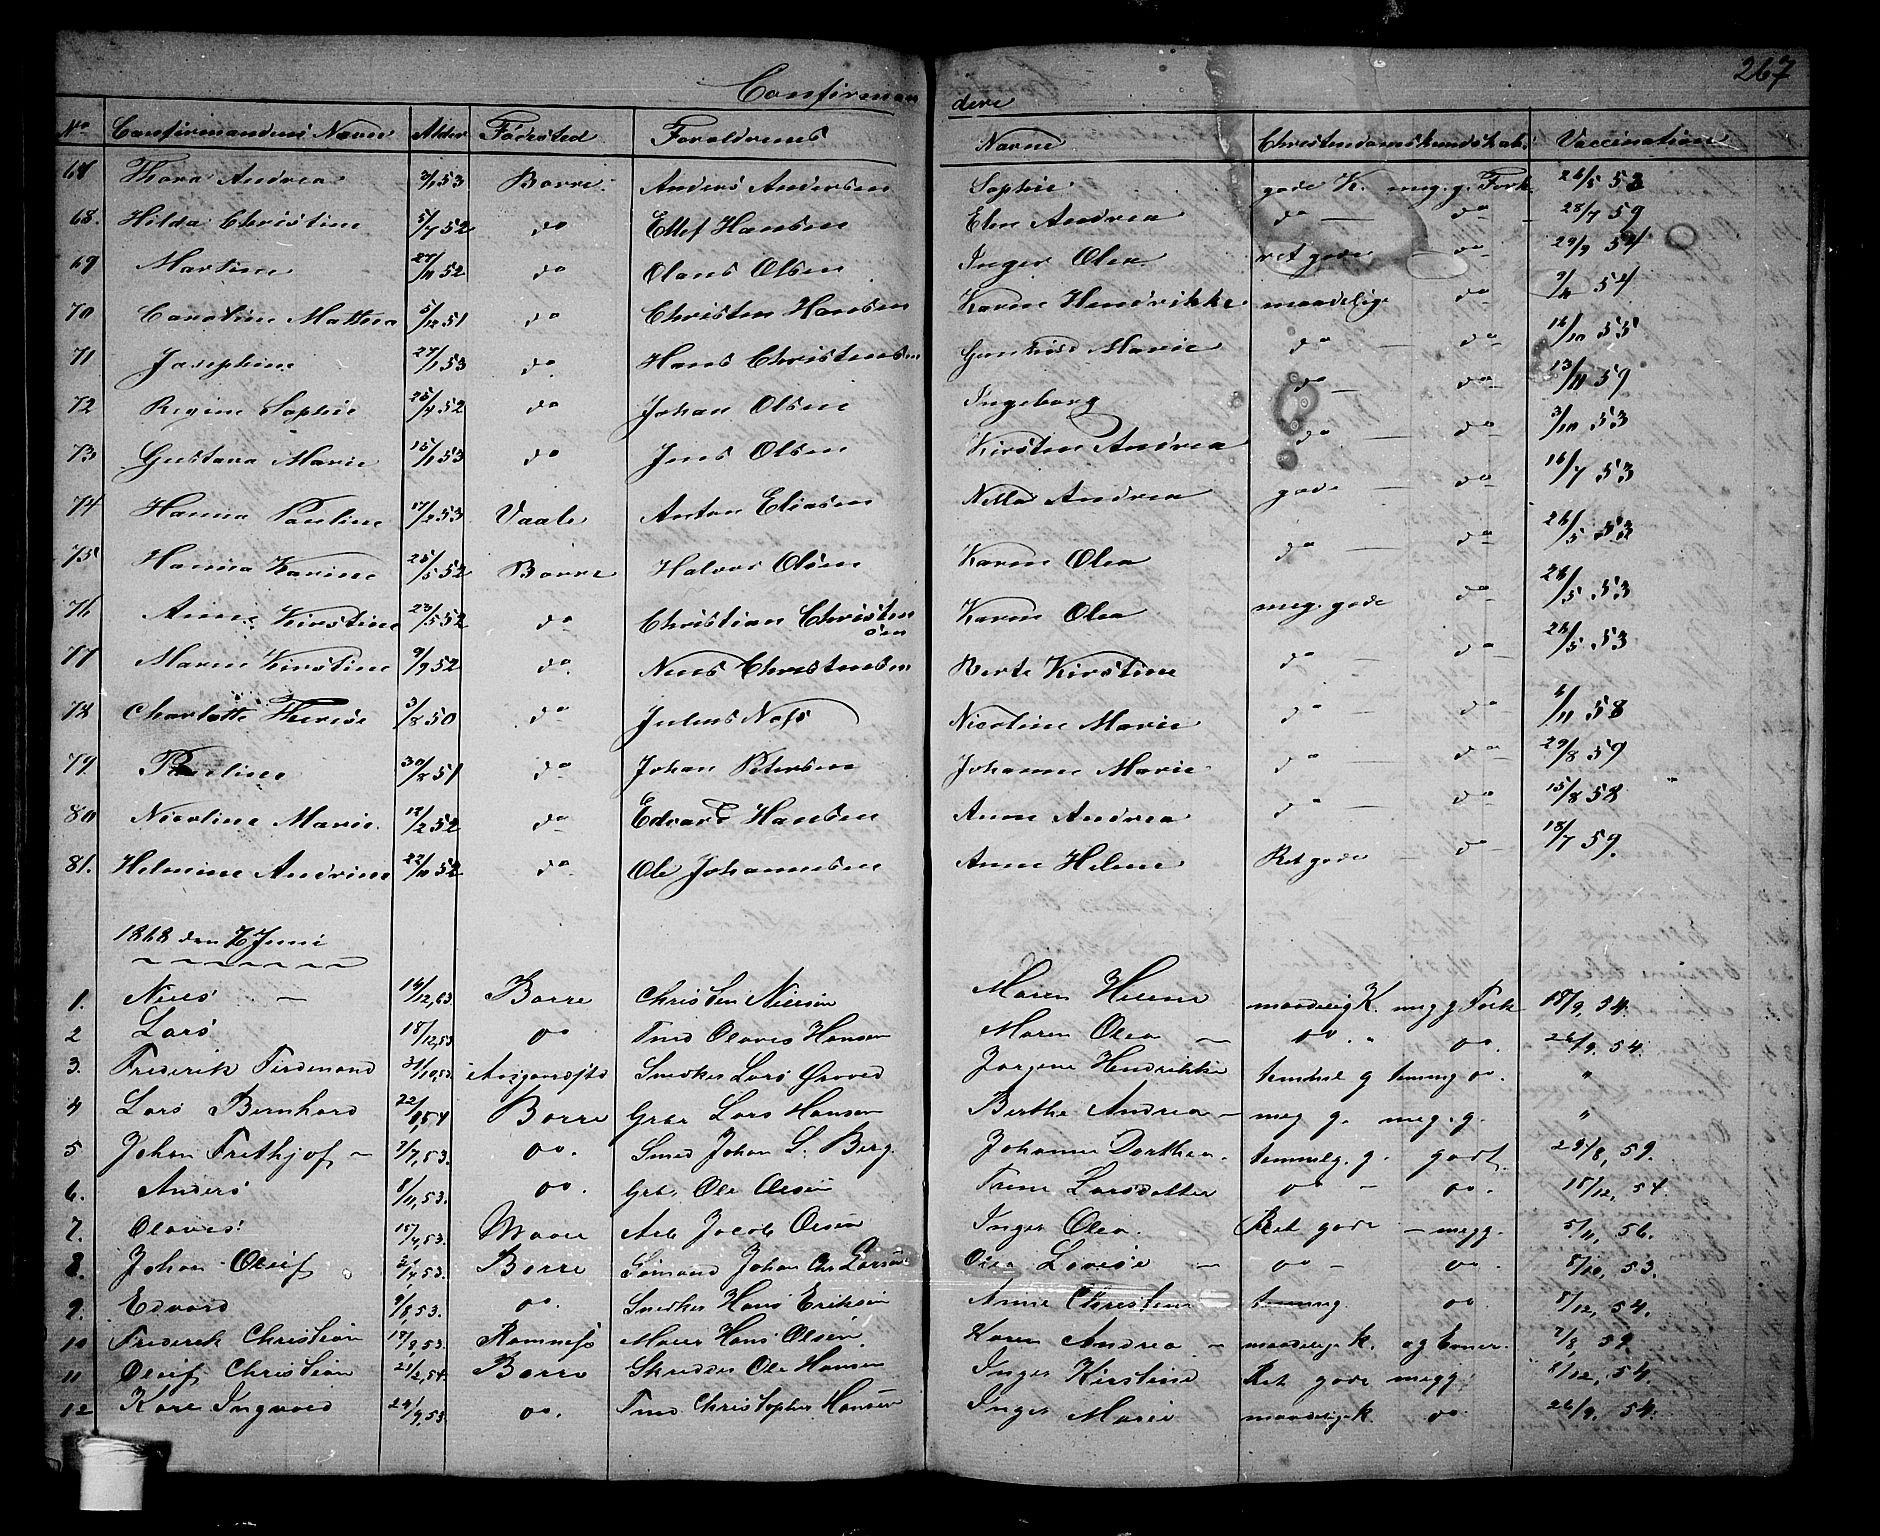 267
Confirmandere
No Confirmandens Navn Alder Födested Forældrenes Navne Christendomskundskab Vaccination
67 Thora Andrea 3/1 53 Borre Anders Andersen Sophie gode K. meg. g. Fork 26/5 53
68. Hilda Christine 5/7 52 do Ellef Hansen Elen Andrea do — do 28/7 59
69 Martine 27/11 52 do Olaus Olsen Inger Olea ret gode do 29/9 54
70 Caroline Mathea 5/12 51 do Christen Hansen Karen Hendrikke maadelige do 54
71 Josephine 27/1 53 do Hans Christensen Gunhild Marie do — do 16/10 55
72 Regine Sophie 52 do Johan Olsen Ingeborg do — do 13/11 59
73 Gustava Marie 15/1 53 do Jens Olsen Kirsten Andrea do — do 3/10 53
74 Hanna Pauline 17/2 53 Vaale Anton Eliasen Nella Andrea gode — do 16/7 53
75 Hanna Karine 25/5 52 Borre Halvor Olsen Karen Olea do — do 26/5 53
76 Anne Kirstine 23/5 52 do Christian Christensen Karen Olea meg. gode do 26/5 53
77 Maren Kirstine 9/9 52 do Nils Christensen Berte Kirstine do — do 26/5 53
78 Charlotte Therese 3/8 50 do Julius Nass Nicoline Marie do — do 6/11 58
79. Pauline 30/8 51 do Johan Petersen Johanne Marie do do 29/8 59
80 Nicoline Marie 12/2 52 do Edvard Hansen Anne Andrea do — do 15/8 58
81. Helmine Andrine 22/11 52 do Ole Johannesen Anne Helene Ret gode — do 18/7 59.
1868 den 7 Juni
1. Niels — 14/12, 53 Borre Christen Nielsen Maren Helene maadelig K. meg g Fork 18/9, 54.
2 Lars 18/12, 53 oo Tmd Olaves Hansen Maren Olea — oo. oo. 26/9, 54.
3. Frederik Ferdinand 31/10, 53 Aasgaardsstr Snedker Lars Grøved Jørgine Hendrikke temmel g temmg oo. "
4 Lars Bernhard 22/1, 54 Borre Grbr Lars Hansen Berthe Andrea — meg g. meg. g. "
5 Johan Frithjof — 7/7, 53. oo. Smed Johan L. Berg Johanne Dorthea. temmelg. g. godt. 29/8, 59.
6. Anders 8/11, 53. oo. Grbr Ole Olsen Trine Larsdatter oo — oo. 15/12, 54.
7. Olaves 15/4, 53. Moss Arb Jacob Olsen Inger Olea. Ret gode — megg. 5/11, 56.
8. Johan Oluf 21/4, 53. Borre Sømand Johan Chr Larsen Olea Lovise — oo — oo. 8/10, 53.
9. Edvard 9/8, 53. oo. Snedker Hans Eriksen Anne Christine temmg. oo. 8/12, 54.
10 Frederik Christian 18/9, 53. Ramnes Murer Hans Olsen Karen Andrea — maadelige K. og Evner. 7/8, 59.
11 Oluf Christian 21/2, 54 Borre Skrædder Ole Hansen Inger Kirstine Ret gode megg. 8/12, 54.
12 Kare Ingvald 24/9, 53 oo. Tmd Christopher Hansen Inger Marie maadelige K. oo. 26/9. 54.